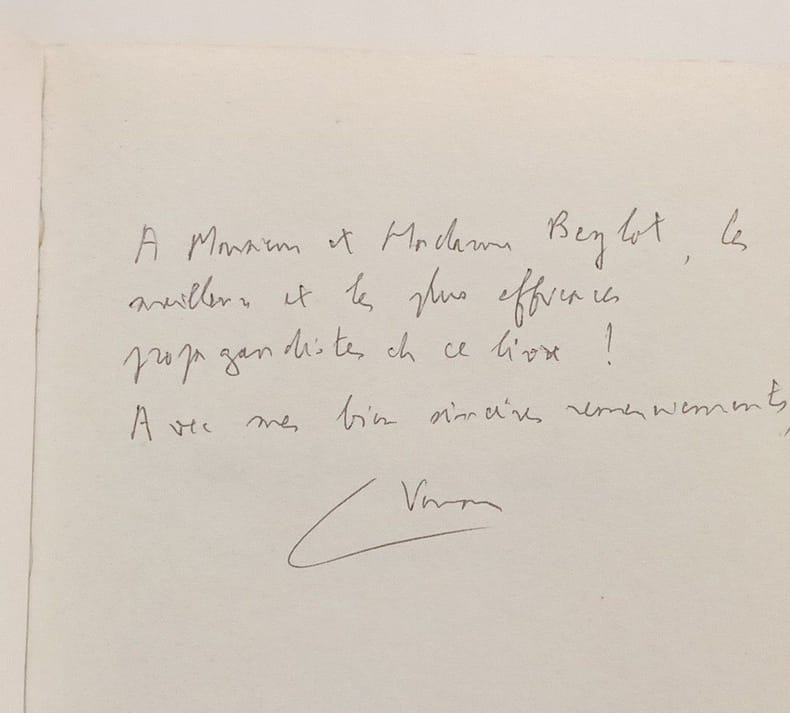 A Monsieur et Madame Beylot, les
meilleurs et les plus efficaces
propagandistes de ce livre !
Avec mes bien sincères remerciements,